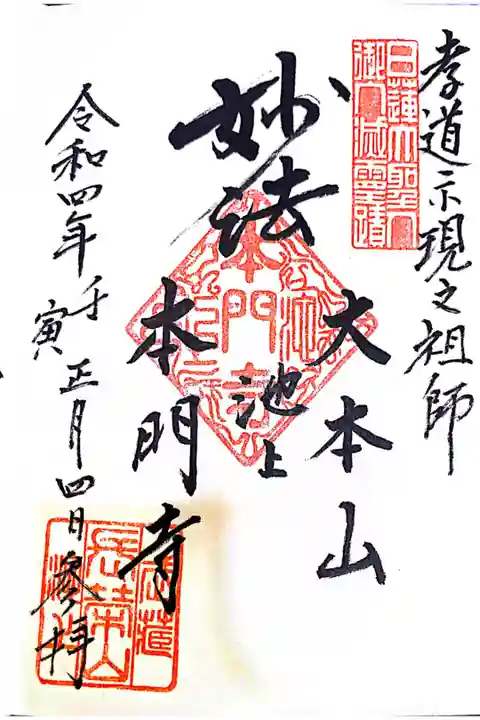 孝道示現之祖師
日蓮大聖人
御入滅霊蹟
大本山
池上
妙法
本門寺
令和四年壬寅正月四日参拝
長栄山